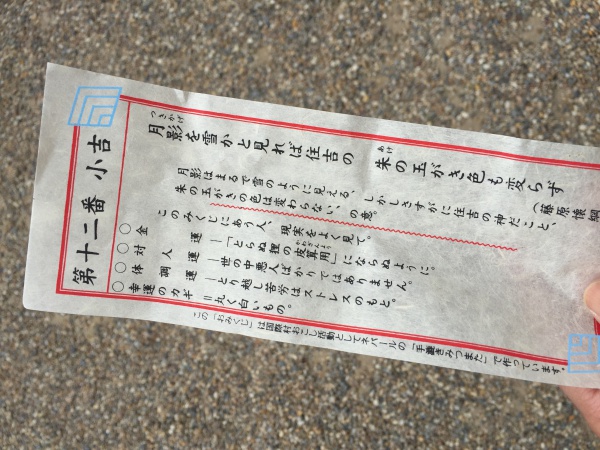 第十二番 小吉
つきかげ
月影を雪かと見れば住吉の
あけ
朱の玉がき色も変らず
(藤原懐綱)
月影はまるで雪のように見える、しかしさすがに住吉の神だこと、
朱の玉がきの色は変わらない!の意。
このみくじにあう人、現実をよく見て。
○金運―「とらぬ狸の皮算用」にならぬように。
かわざんよう
○対人運―世の中悪人ばかりではありません。
○体調運―とり越し苦労はストレスのもと。
○幸運のカギ=丸く白いもの。
この「おみくじ」は国際村おこし活動としてネパールの「手漉きみつまた」で作っています。